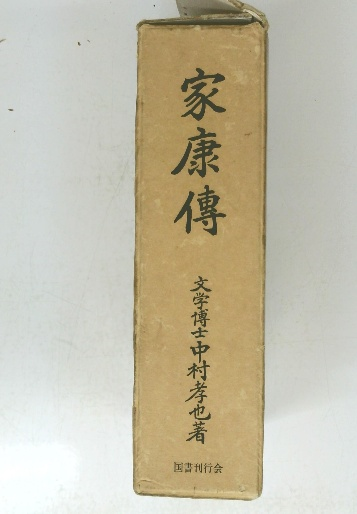 家康傳
文学博士中村孝也著
国書刊行会